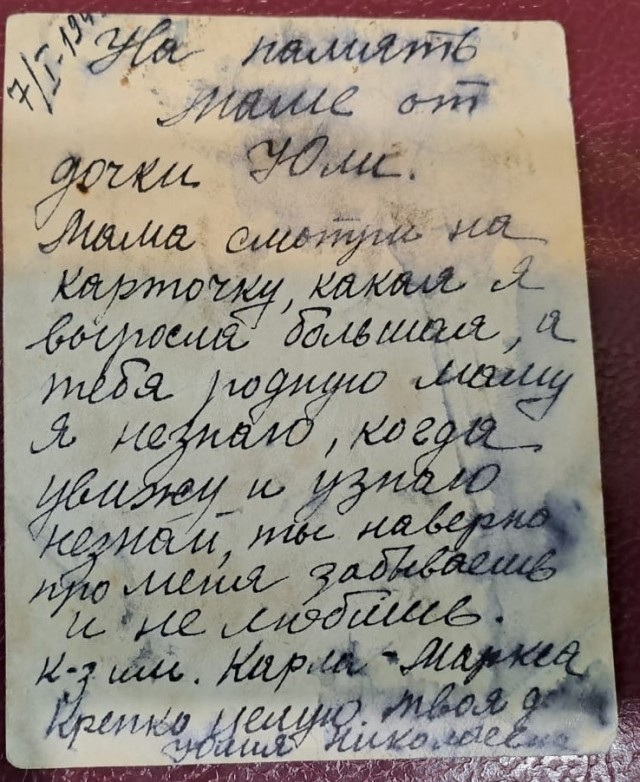 7/I-194
На память
маме от
дочки Юли.
Мама смотри на
карточку, какая я
выросла большая, а
тебя родную маму
я незнаю, когда
увижу и узнаю
незнаю, ты наверно
про меня забываешь
и не любишь.
к-з им. Карла-Маркса
Крепко целую твоя д
Юлия Николаевна